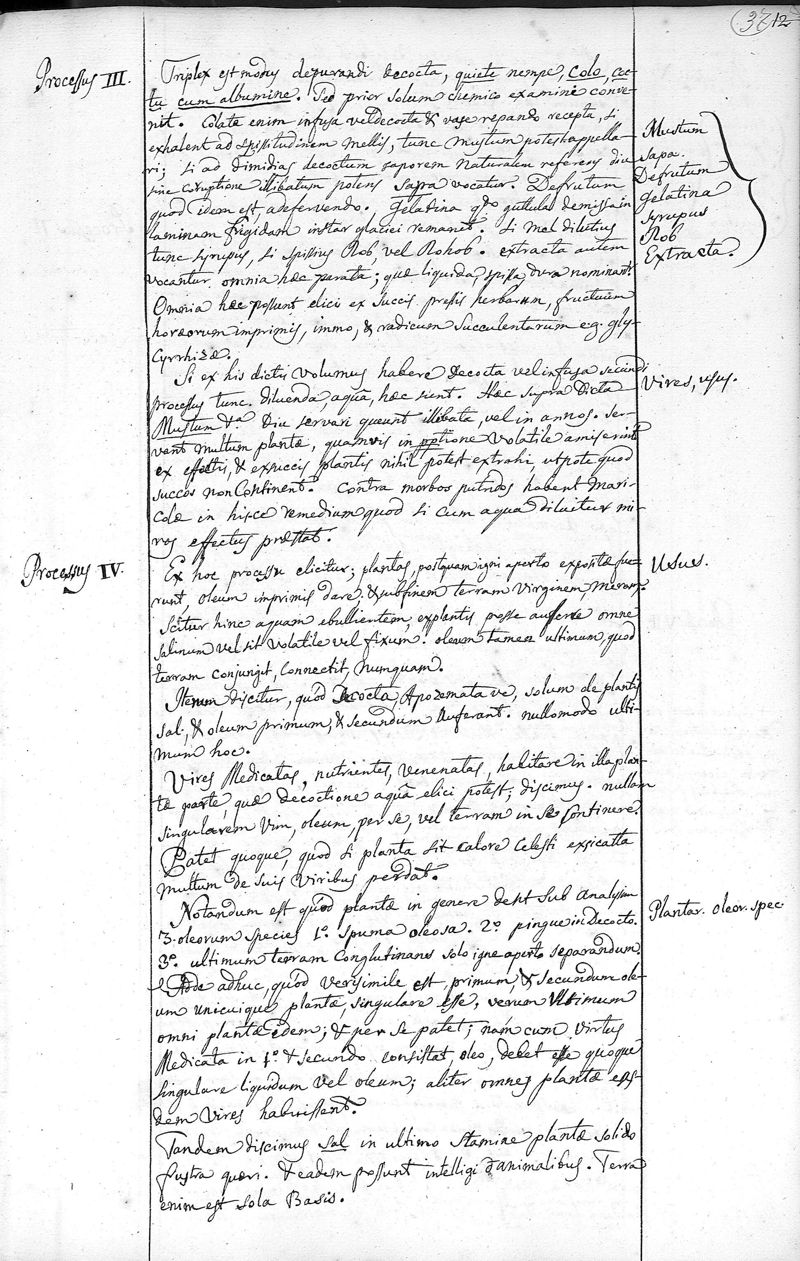 37 12
Processus III.
Triplex est modus depurandi decocta, quiete nempe, colo, coc-
tu cum albumine. Sed prior solum chemico examini conve-
nit. Colate enim infusa vel decocta & vase repando recepta, si
exhalent ad spissitudinem mellis, tunc mustum potest appella-
ri; si ad dimidias decoctum saporem naturalem referens diu
sine coruptione illibatum potens sapra vocatur. Defrutum
quod idem est, a defervendo. Geladina qdo guttula demissa in
laminam frigidam instar glaciei remanet. Si mel dilutius
tunc syrupus, si spissius Rob, vel Rohob. extracta autem
vocantur omnia hæc parata; quæ liquida, spissa, dura nominant.
Omnia hæc possunt elici ex succis pressis herbarum, fructuum
horæorum imprimis, immo, & radicum succulentarum e.g. gly-
cyrrhizæ.
Mustum
sapa.
Defrutum
gelatina
syrupus
Rob
Extracta.
Si ex his dictis volumus habere decocta vel infusa secundi
processus tunc diluenda, aquâ, hæc sunt. Hæc supra dicta
Mustum &a diu servari queunt illibata, vel in annos. ser-
vent multum plantæ, quamvis in pptione volatile amiserint
ex effectis, & exsuccis plantis nihil potest extrahi, utpote quod
succos non continent. Contra morbos putridos habent Mari-
colæ in hisce remedium quod si cum aqua diluitur mi-
ros effectus præstat.
Vires, usus.
Processus IV.
Ex hoc processu elicitur; plantas, postquam igni aperto expositæ fue-
runt, oleum imprimis dare. & sub finem terram virginem, meram.
Scitur hinc aquam ebullientem, ex plantis posse auferre omne
salinum vel sit volatile vel fixum. oleum tamen ultimum, quod
terram conjungit, connectit, nunquam.
Usus.
Iterum discitur, quod Decocta, Apozemata ve, solum de plantis
sal, & oleum primum, & secundum auferant. nullomodo ulti-
mum hoc.
Vires Medicatas, nutrientes, venenatas, habitare in illa plan-
tæ parte, quæ decoctione aquâ elici potest; discimus. nullam
singularem vim, oleum, per se, vel terram in se continere.
Patet quoque, quod si planta sit calore celesti exsicatta
multum de suis viribus perdat.
Notandum est quod plantæ in genere dent sub analysin
3. oleorum species 1o. spuma oleosa. 2o. pingue in Decocto.
3o. ultimum terram conglutinans solo igne aperto separandum.
Plantar. oleor. spec.
Adde adhuc, quod verisimile est, primum, & secundum ole-
um unicuique plantæ, singulare esse, verum ultimum
omni plantæ idem; & per se patet; nam cum virtus
Medicata in 1o. & secundo consistat, oleo, debet esse quoque
singulare liquidum vel oleum; aliter omnes plantæ eas-
dem vires habuissent.
Tandem discimus sal in ultimo stamine plantæ solido
frustra quæri. & eadem possunt intelligi d'animalibus. Terra
enim est sola Basis.